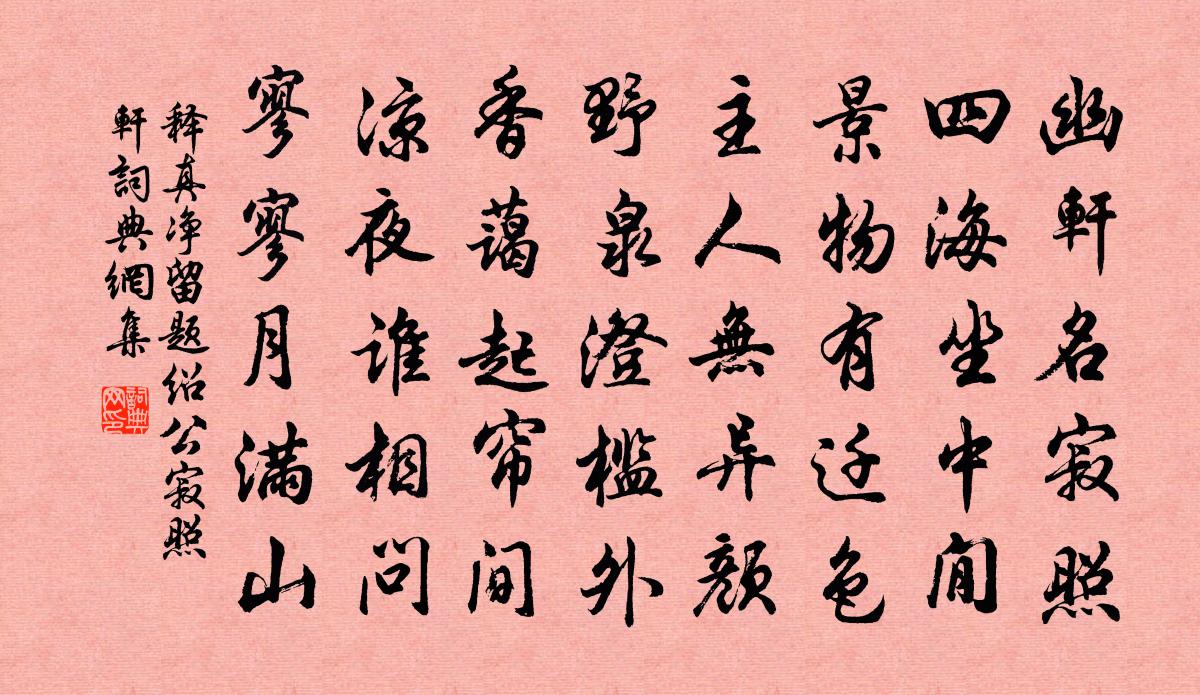 幽軒名寂照
四海坐中閒
景物有迁色
主人無异顔
野泉澄檻外
香藹起帘间
凉夜谁相问
寥寥月满山
释真净留题绍公寂照
軒詞典網集
詞典网印